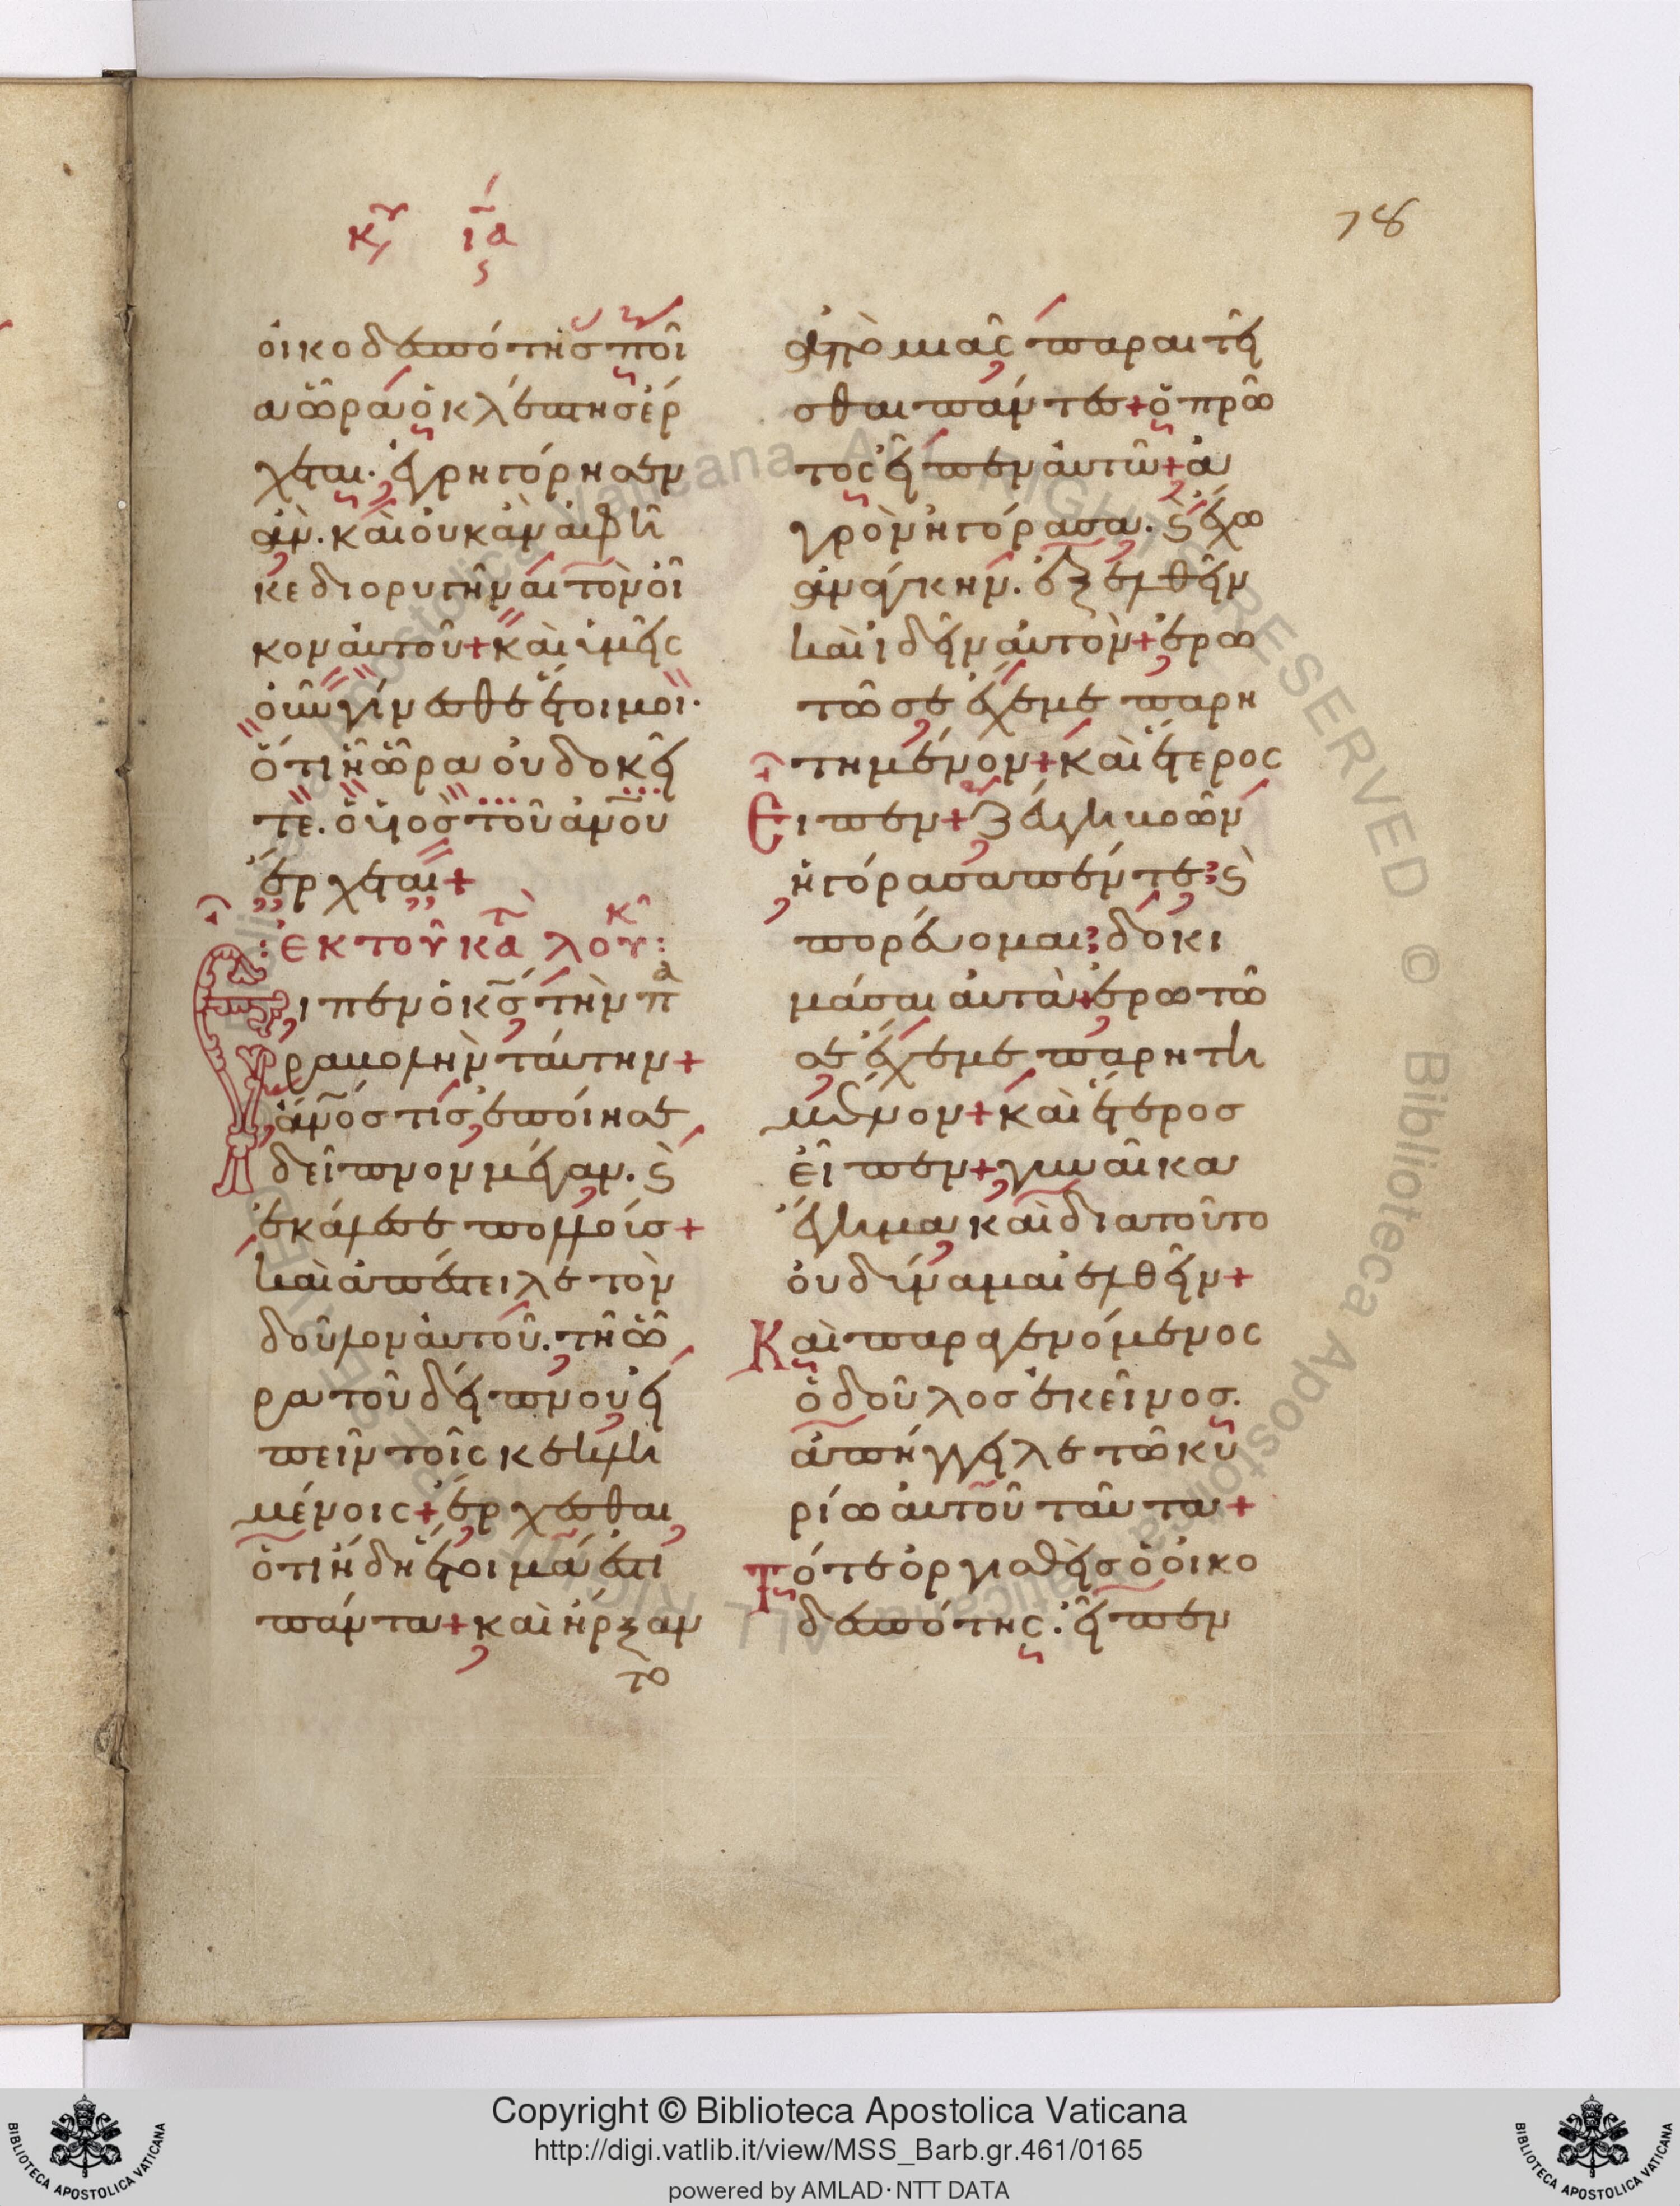 κυ ια
78
οἰκοδεσπότης ποῖ
α ὥρα ὁ κλέπτης ἔρ
χεται. ἐγρηγόρησεν
ἄν. καὶ οὐκ ἂν ἀφῆ
κε διορυγῆναι τὸν οἶ
κον αὐτοῦ + καὶ ὑμεῖς
οὖν γίνεσθε ἕτοιμοι.
ὅτι ἧ ὥρα οὐ δοκεῖ
τε. ὁ υἱὸς τοῦ ἀνου
ἔρχεται +
: ἐκ τοῦ κατ λουκ :
Εἶπεν ὁ κς τὴν πα
ραβολὴν ταύτην +
ἀνος τίς ἐποίησε
δεῖπνον μέγαν. καὶ
ἐκάλεσε πολλοίσ +
καὶ ἀπέστειλε τὸν
δοῦλον αὐτοῦ. τῆ ὥ
ρα τοῦ δείπνου εἰ
πεῖν τοῖς κεκλη
μένοις + ἔρχεσθαι
ὅτι ἤδη ἕτοιμά ἐστι
πάντα + καὶ ἤρξαν
το
ἀπὸ μιᾶς παραιτεῖ
σθαι πάντες + ὁ πρῶ
τος εἶπεν αὐτῶ + ἀ
γρὸν ἠγόρασα. καὶ ἔχω
ἀνάγκην. ἐξελθεῖν
καὶ ἰδεῖν αὐτὸν + ἐρω
τῶ σε ἔχε με παρη
τημένον + καὶ ἕτερος
Εἶπεν + ζεύγη βοῶν
ἠγόρασα πέντε; καὶ
πορεύομαι; δοκι
μάσαι αὐτὰ + ἐρωτῶ
σε ἔχε με παρητη
μένον + καὶ ἕτερος
εἶπεν + γυναῖκα
ἔγημα καὶ διατοῦτο
οὐ δύναμαι ἐλθεῖν +
Καὶ παραγενόμενος
ὁ δοῦλος ἐκεῖνος.
ἀπήγγειλε τῶ κυ
ρίω αὐτοῦ ταῦτα +
Τότε ὀργισθεὶς ὁ οἰκο
δεσπότης. εἶπεν
Copyright © Biblioteca Apostolica Vaticana
http://digi.vatlib.it/view/MSS_Barb.gr.461/0165
powered by AMLAD·NTT DATA
BIBLIOTECA APOSTOLICA VATICANA
BIBLIOTECA APOSTOLICA VATICANA